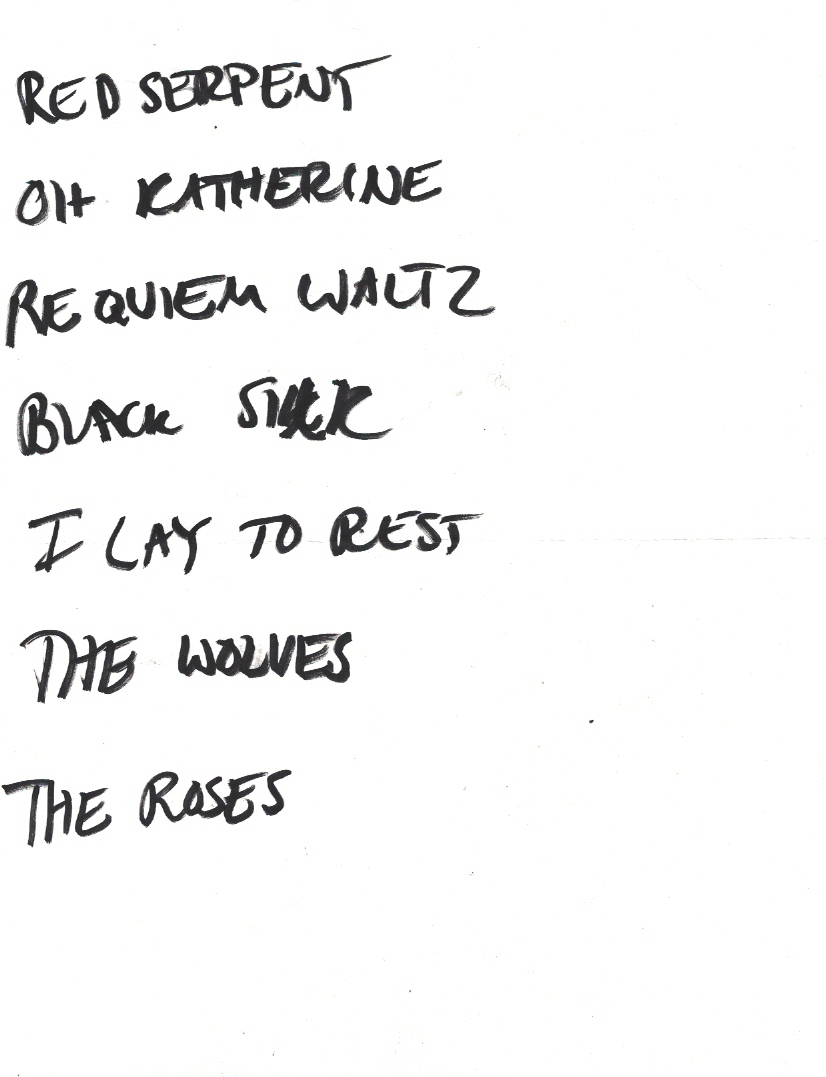 RED SERPENT
OH KATHERINE
REQUIEM WALTZ
BLACK SILK
I LAY TO REST
THE WOLVES
THE ROSES